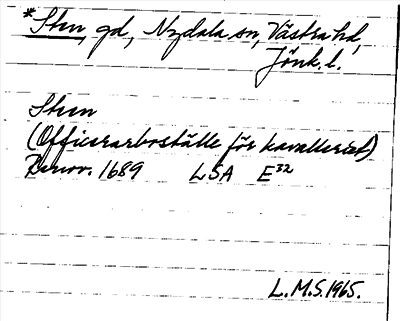 *Sten, gd, Nydala sn, Västra hd,
Jönk. l.
Steen
(Officersarboställe för kavalleriet)
Renov. 1689 LSA E32
L.M.S. 1965.